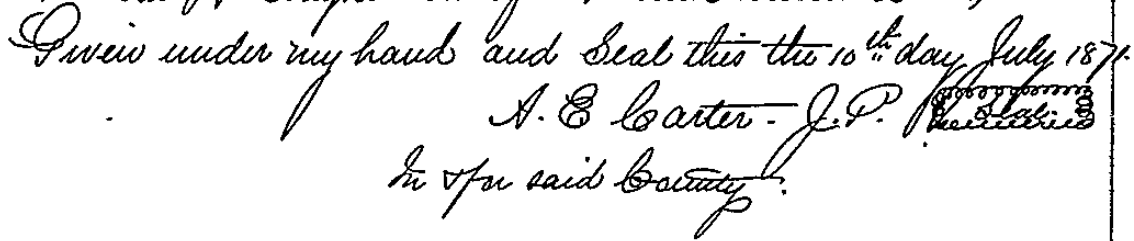 Given under my hand and Seal this the 10th day July 1871.
A. E Carter - J. P. Seal
In & for said County.